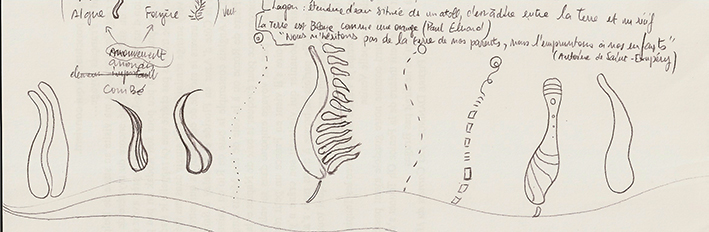 Algue Fougère
Lagon : étendue d'eau située de un atoll, c'est à dire entre la terre et un récif
La Terre est Bleue comme une orange (Paul Eluard)
"Nous n'héritons pas de la terre de nos parents, nous l'empruntons à nos enfants"
(Antoine de Saint-Exupéry)
mouvement
combé